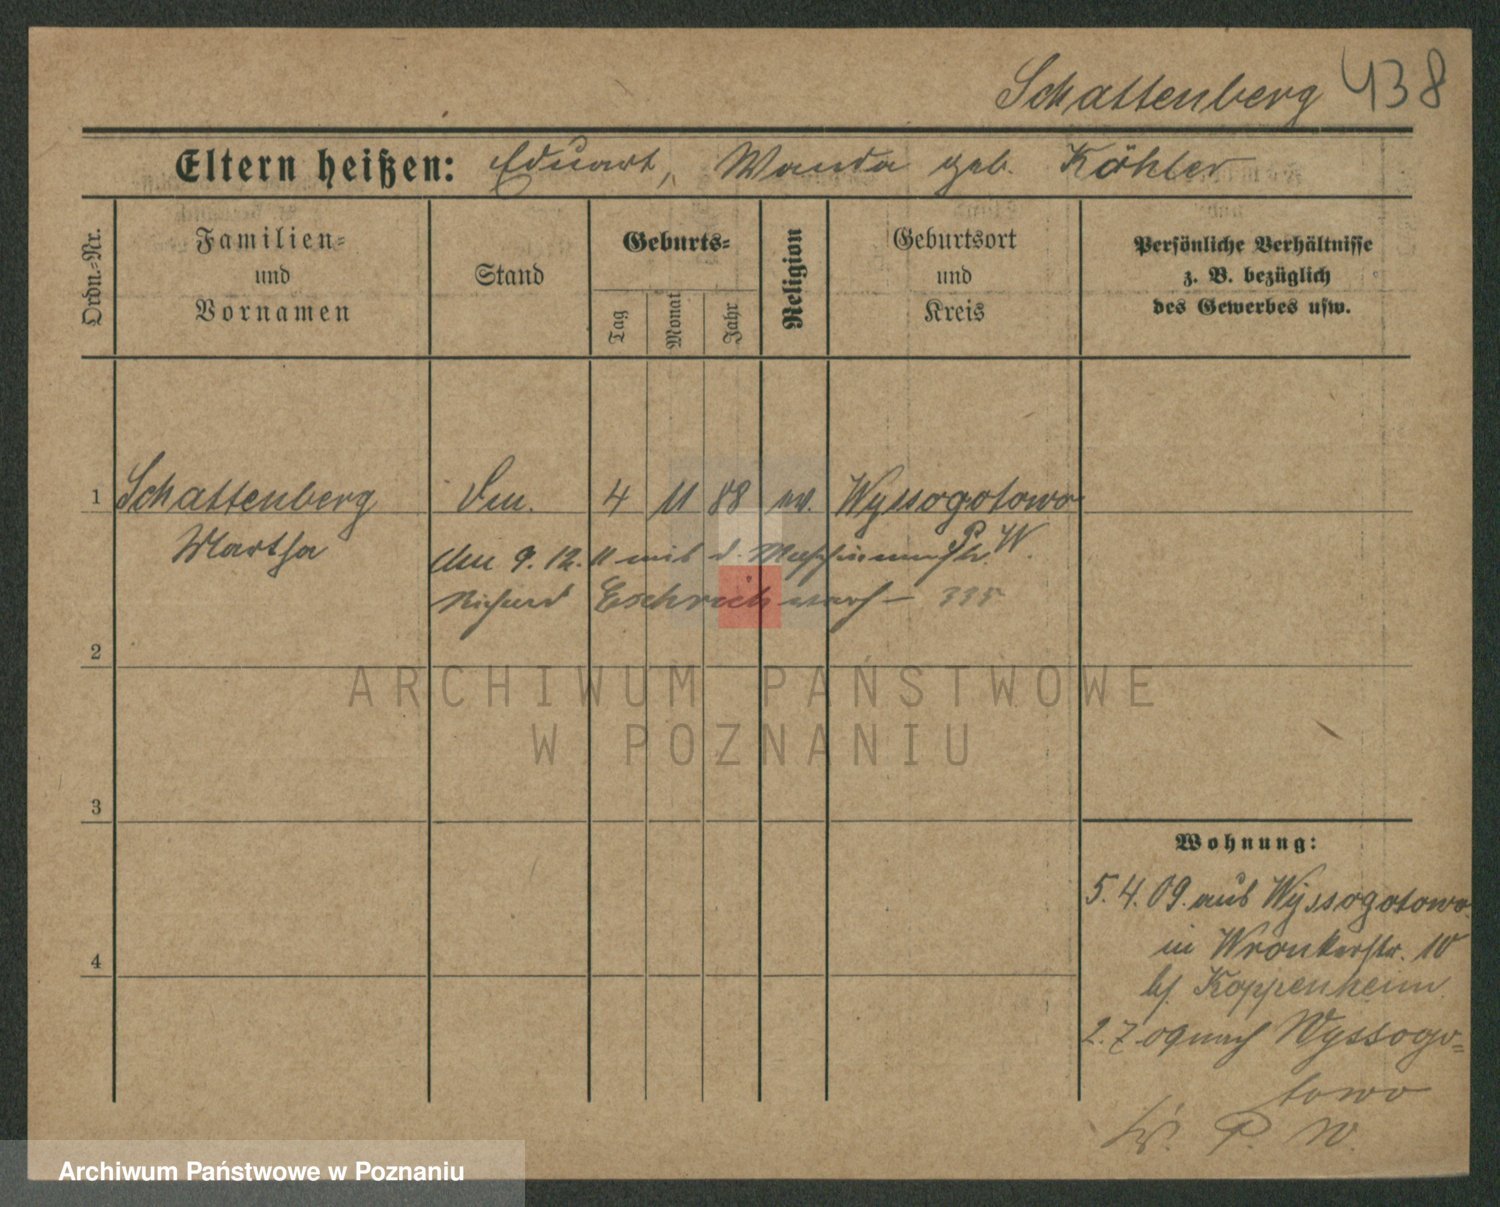 Schattenberg 438
Eltern heißen: Eduart, Wanda geb. Köhler
Ordn.-Nr.
Familien-
und
Vornamen
Stand
Geburts-
Tag
Monat
Jahr
Religion
Geburtsort
und
Kreis
Persönliche Verhältnisse
z. B. bezüglich
des Gewerbes usw.
1 Schattenberg 4 11 88 ev. Wyssogotowo
Martha P. W.
9. 12. 11 mit d.
Richard Eschrich 335
2
3
4
Wohnung:
5. 4. 09. aus Wyssogotowo
in Wronkerstr. 10
bj. Koppenheim
2. 7. 09 nach Wyssogo-
towo
Kr. P. W.
ARCHIWUM PAŃSTWOWE
W POZNANIU
Archiwum Państwowe w Poznaniu